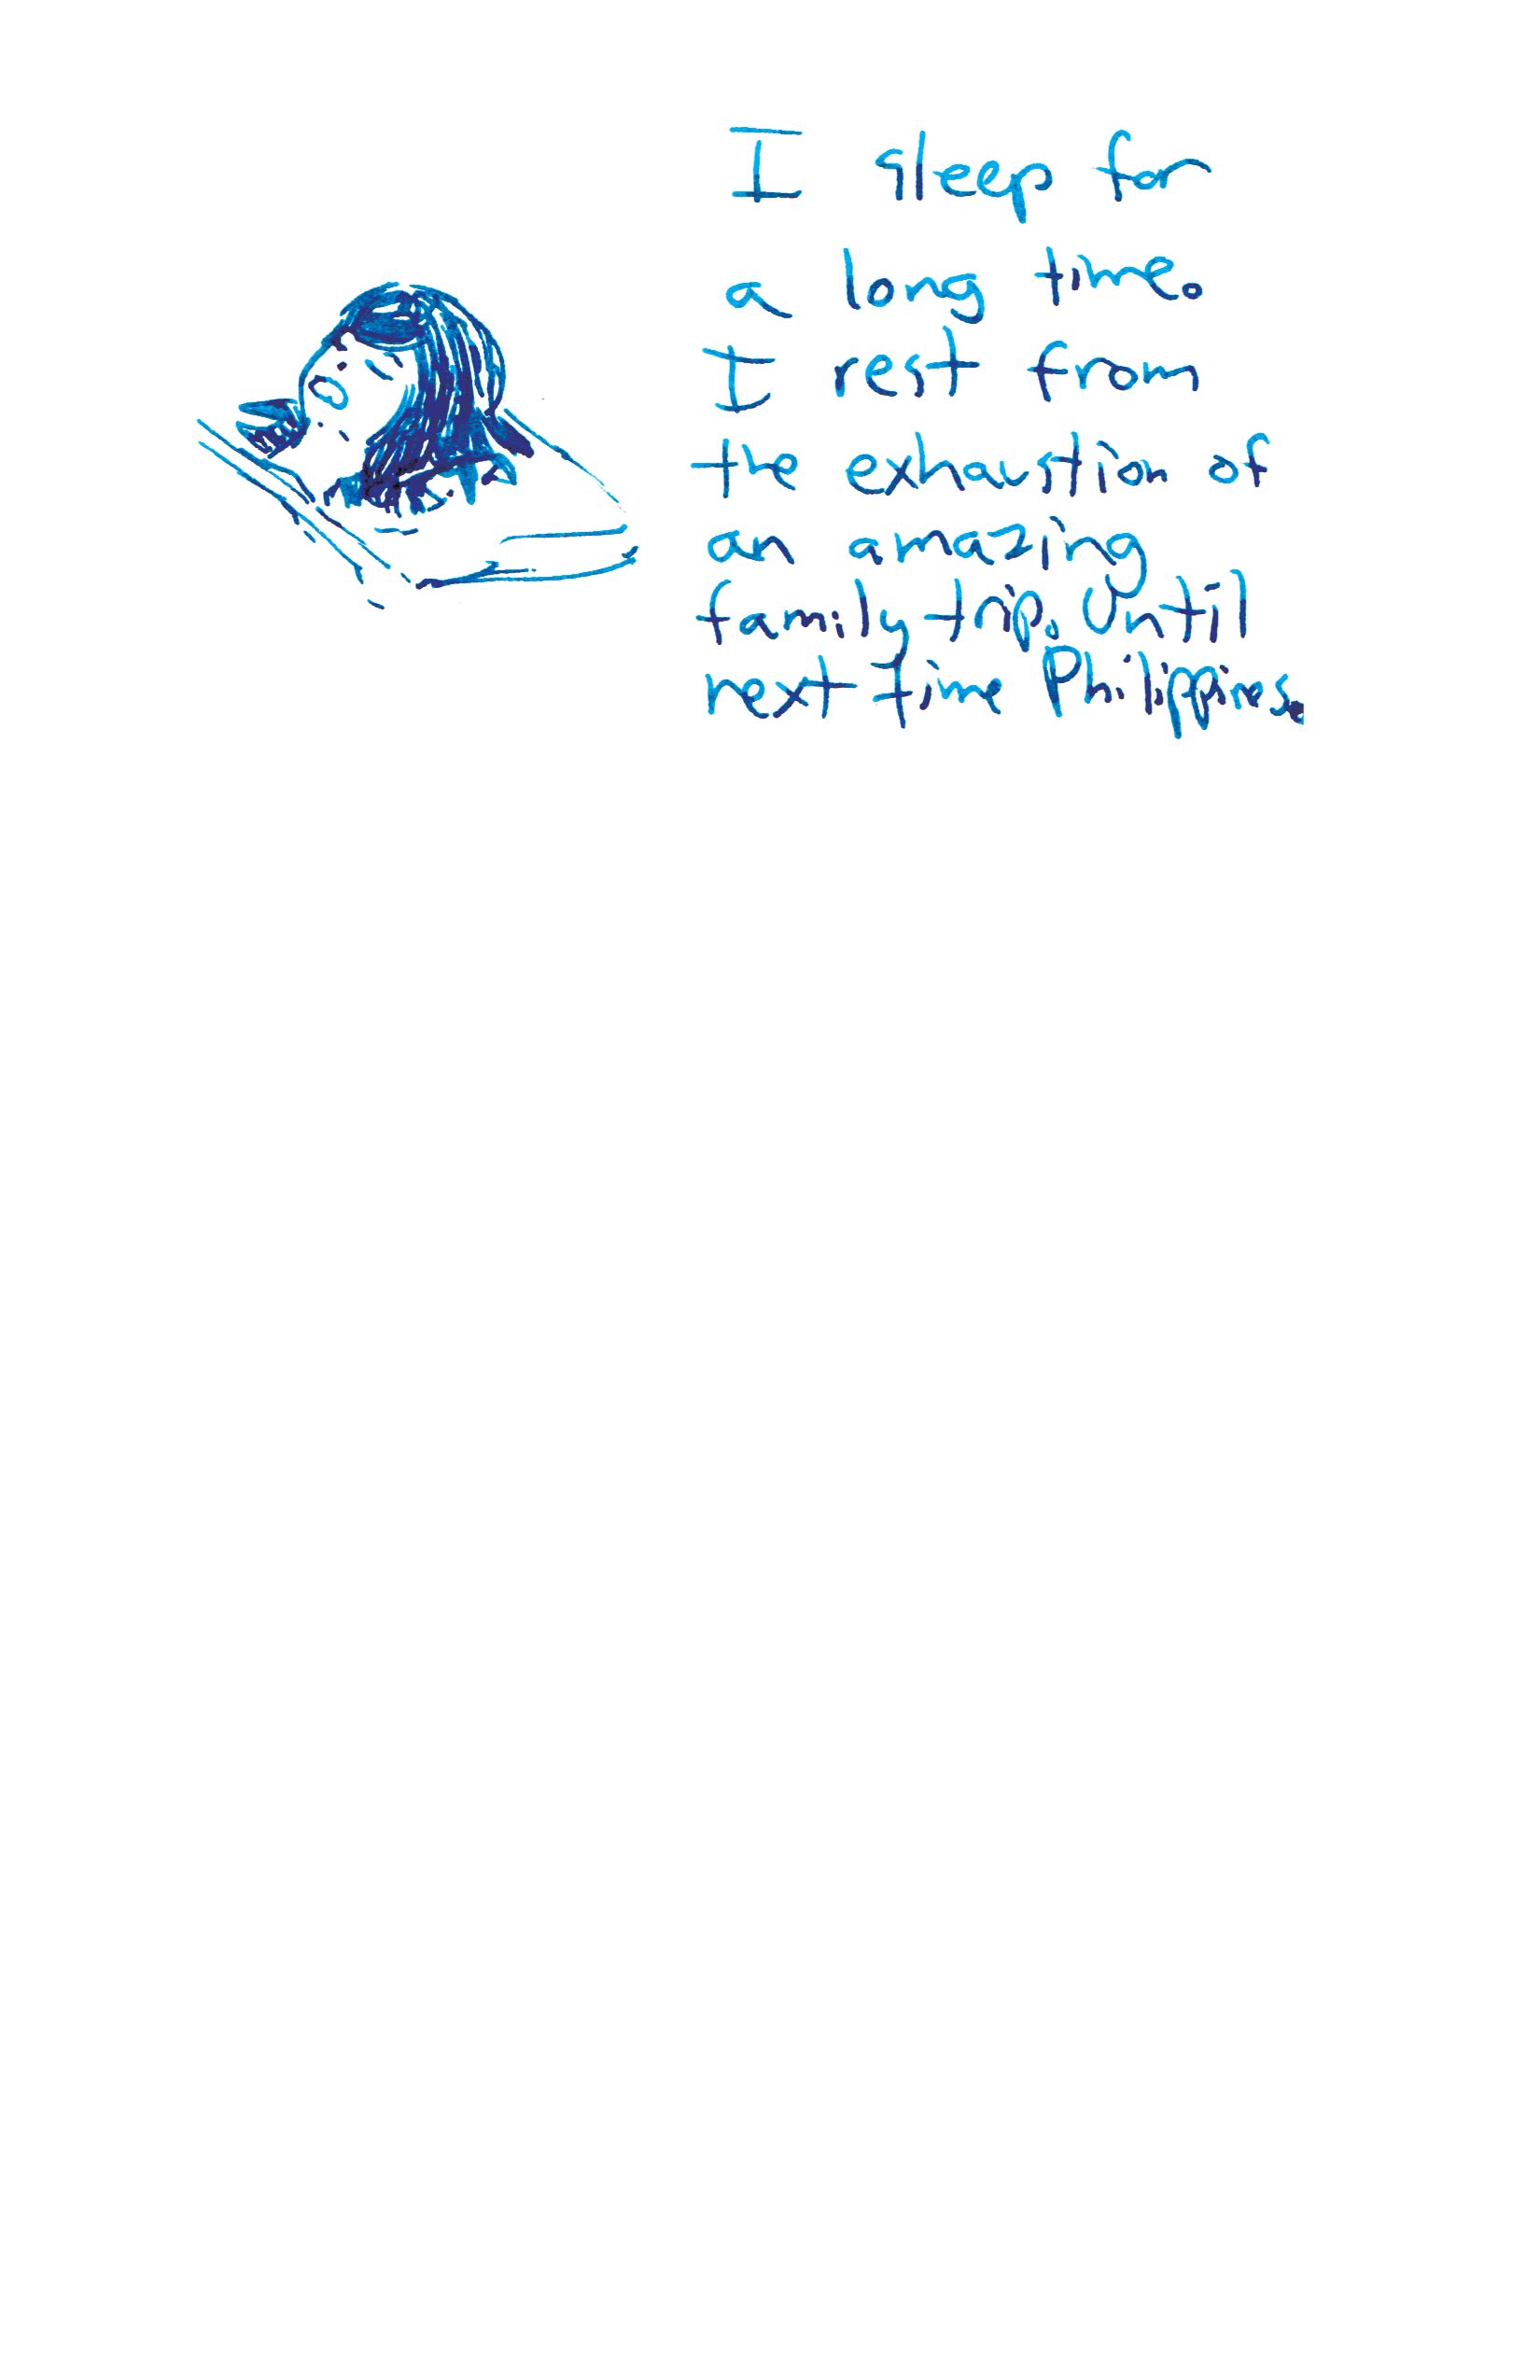 I sleep for
a long time.
I rest from
the exhaustion of
an amazing
family trip. Until
next time Philippines.